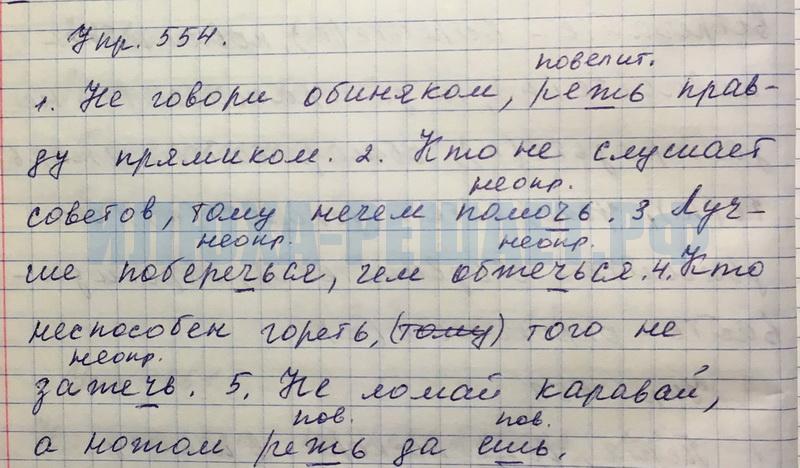 Упр. 554.
повелит.
1. Не говори обиняком, режь прав-
ду прямиком. 2. Кто не слушает
неопр.
советов, тому нечем помочь. 3. Луч-
неопр. неопр.
ше поберечься, чем обжечься. 4. Кто
неспособен гореть, (тому) того не
неопр.
зажечь. 5. Не ломай каравай,
пов. пов.
а ножом режь да ешь.